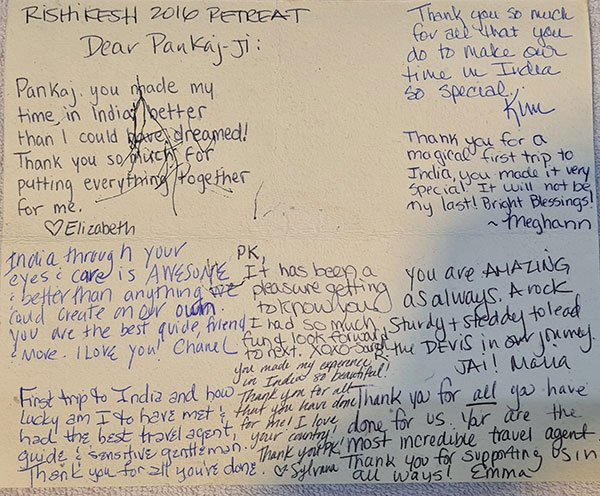 RISHIKESH 2016 RETREAT
Dear Pankaj-Ji:
Pankaj, you made my
time in India better
than I could have dreamed!
Thank you so much for
putting everything together
for me.
♡Elizabeth
Thank you so much
for all that you
do to make our
time in India
so special.
Kim
Thank you for a
magical first trip to
India, you made it very
special! It will not be
my last! Bright Blessings!
~Meghann
India through your
eyes & care is AWESOME
& better than anything we
could create on our own.
you are the best guide, friend
& more. I LOVE you! Chanel
PK,
It has been a
pleasure getting
to know you
I had so much
fun & look forward
to next. XOXO-Sarah
you are AMAZING
as always. A rock
Sturdy + steddy to lead
the DEVIS in our journey.
JAI! Malia
First trip to India and how
Lucky am I to have met &
had the best travel agent,
guide & sensitive gentleman.
Thank you for all you're done.
you made my experience
in India so beautiful!
Thank you for all
that you have done
for me! I love
your country!
Thank you PK!
♡ Sylvana
Thank you for all you have
done for us. You are the
most incredible travel agent.
Thank you for supporting us in
all ways! Emma